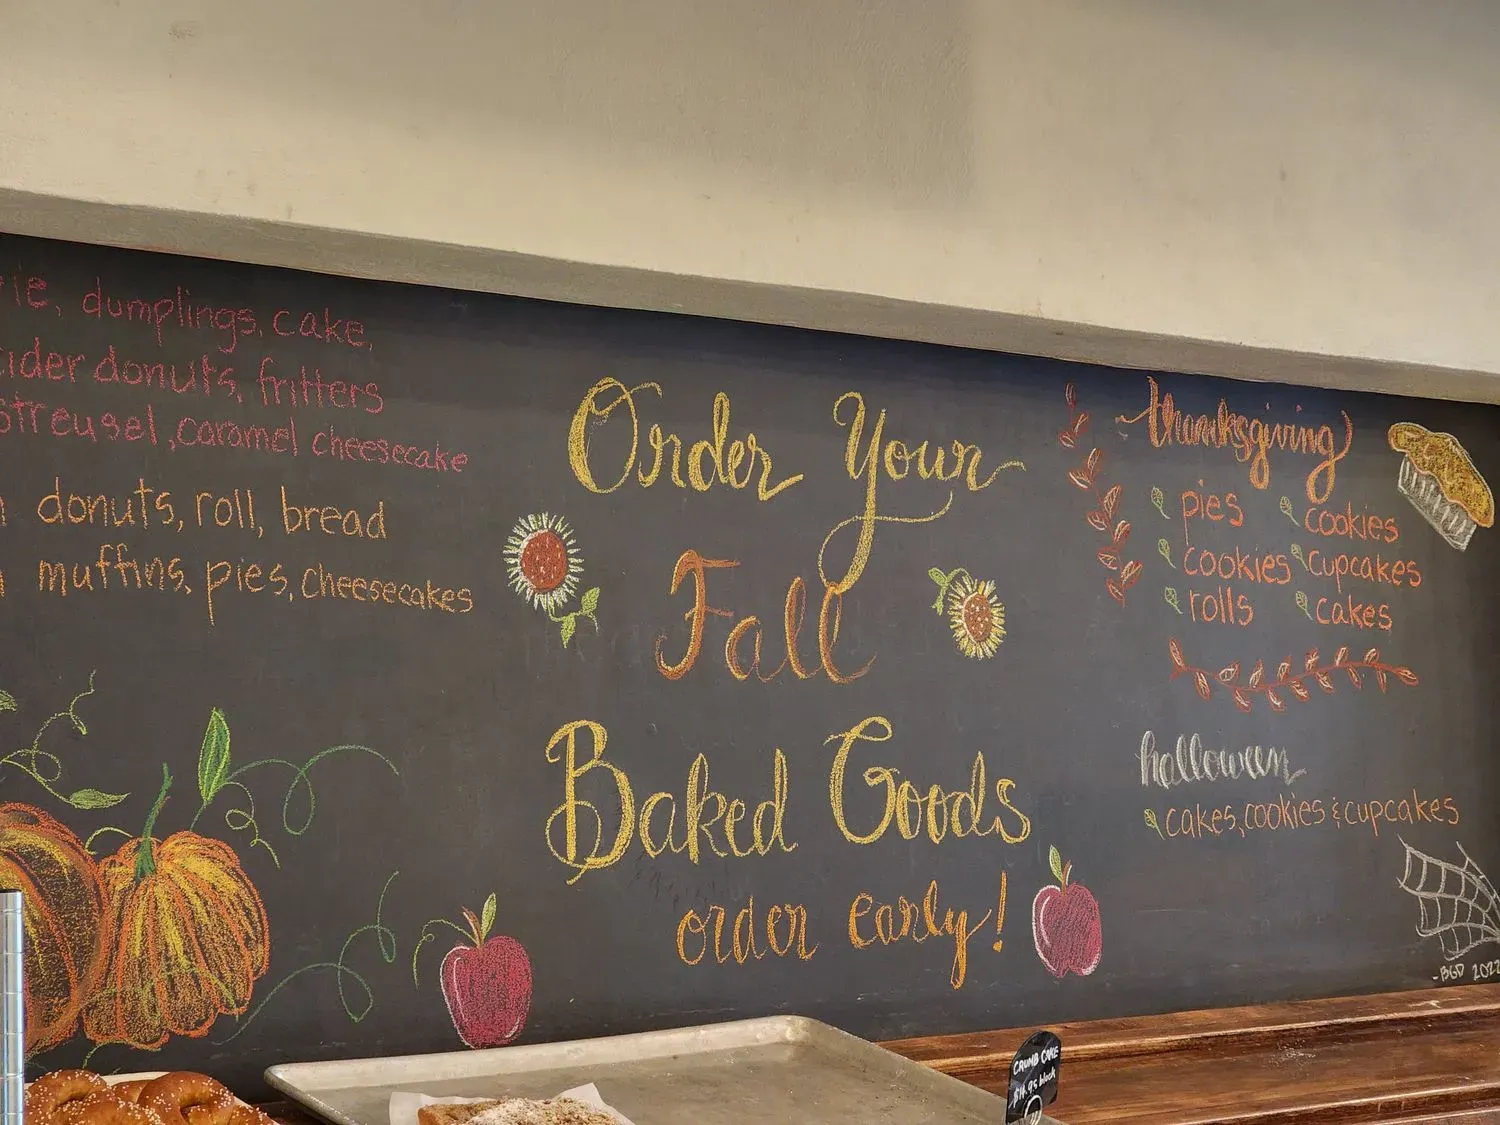 dumplings, cake,
donuts, fritters
Streusel, caramel cheesecake
donuts, roll, bread
muffins, pies, cheesecakes
Order Your
Fall
Baked Goods
order early!
thanksgiving
pies cookies
cookies cupcakes
rolls cakes
halloween
cakes, cookies & cupcakes
-BGD 2022
CRUMB CAKE
block